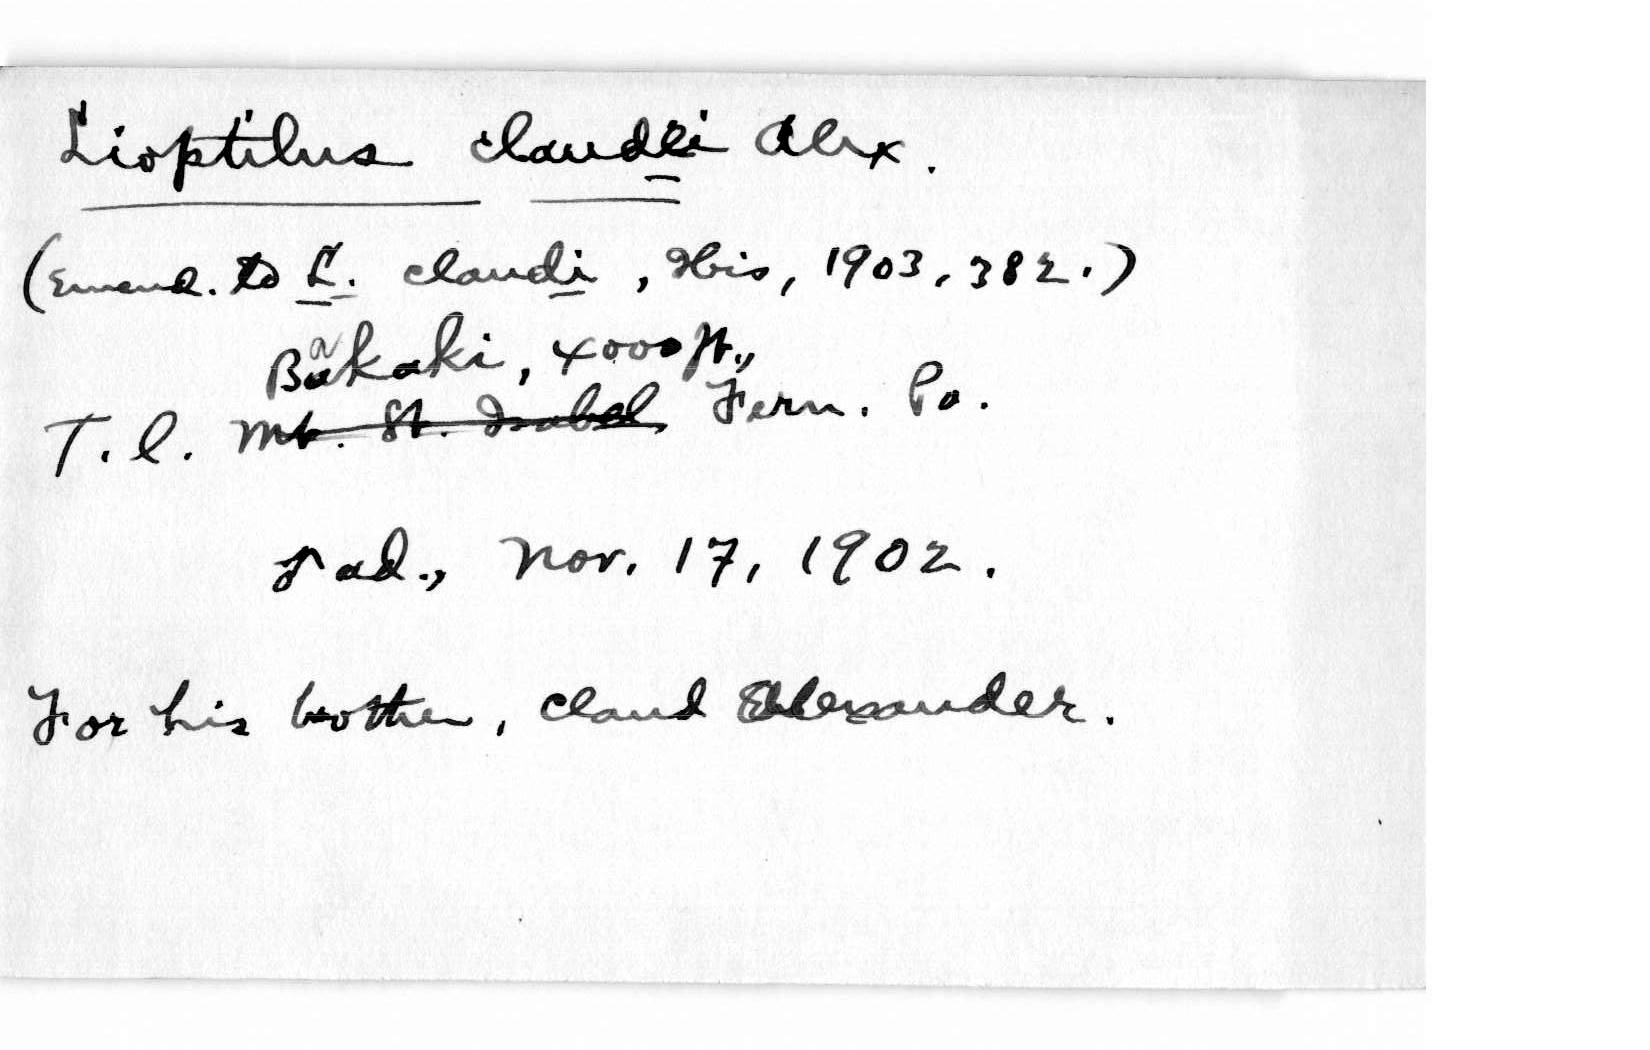 Lioptilus claudei Alex.
(Emend. to L. claudi, Ibis, 1903, 382.)
Bakaki, 4000 ft.,
T. l. Mt. St. Isabel, Fern. Po.
ad., Nov. 17, 1902.
For his brother, Claud Alexander.